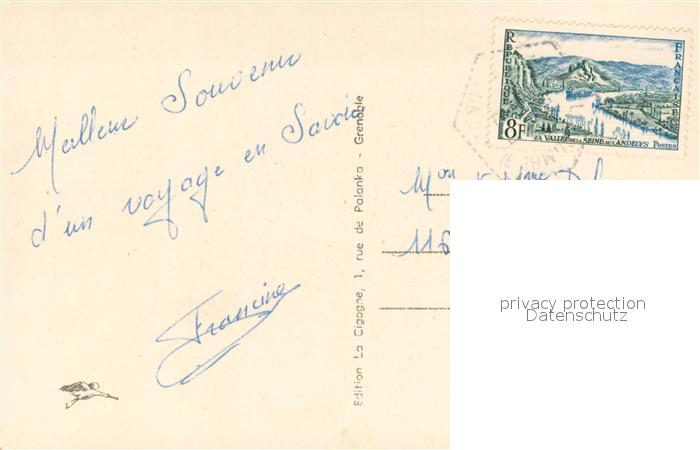 Meilleur Souvenir
d'un voyage en Savoie
Francine
Edition La Cigogne, 1, rue de Palanka - Grenoble
REPUBLIQUE FRANCAISE
8F
LA VALLEE DE LA SEINE AUX ANDELYS POSTES
116
privacy protection
Datenschutz